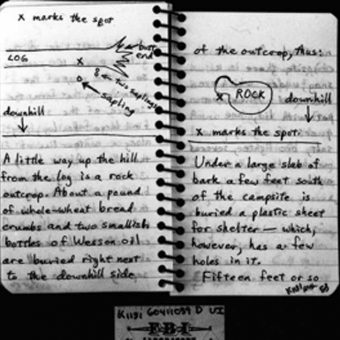 x marks the spot
butt
end
LOG
x
two saplings
sapling
downhill
A little way up the hill
from the log is a rock
outcrop. About a pound
of whole-wheat bread
crumbs and two smallish
bottles of Wesson oil
are buried right next
to the downhill side
of the outcrop, thus:
x
ROCK
downhill
x marks the spot.
Under a large slab of
bark a few feet south
of the campsite is
buried a plastic sheet
for shelter — which,
however, has a few
holes in it.
Fifteen feet or so
FBI